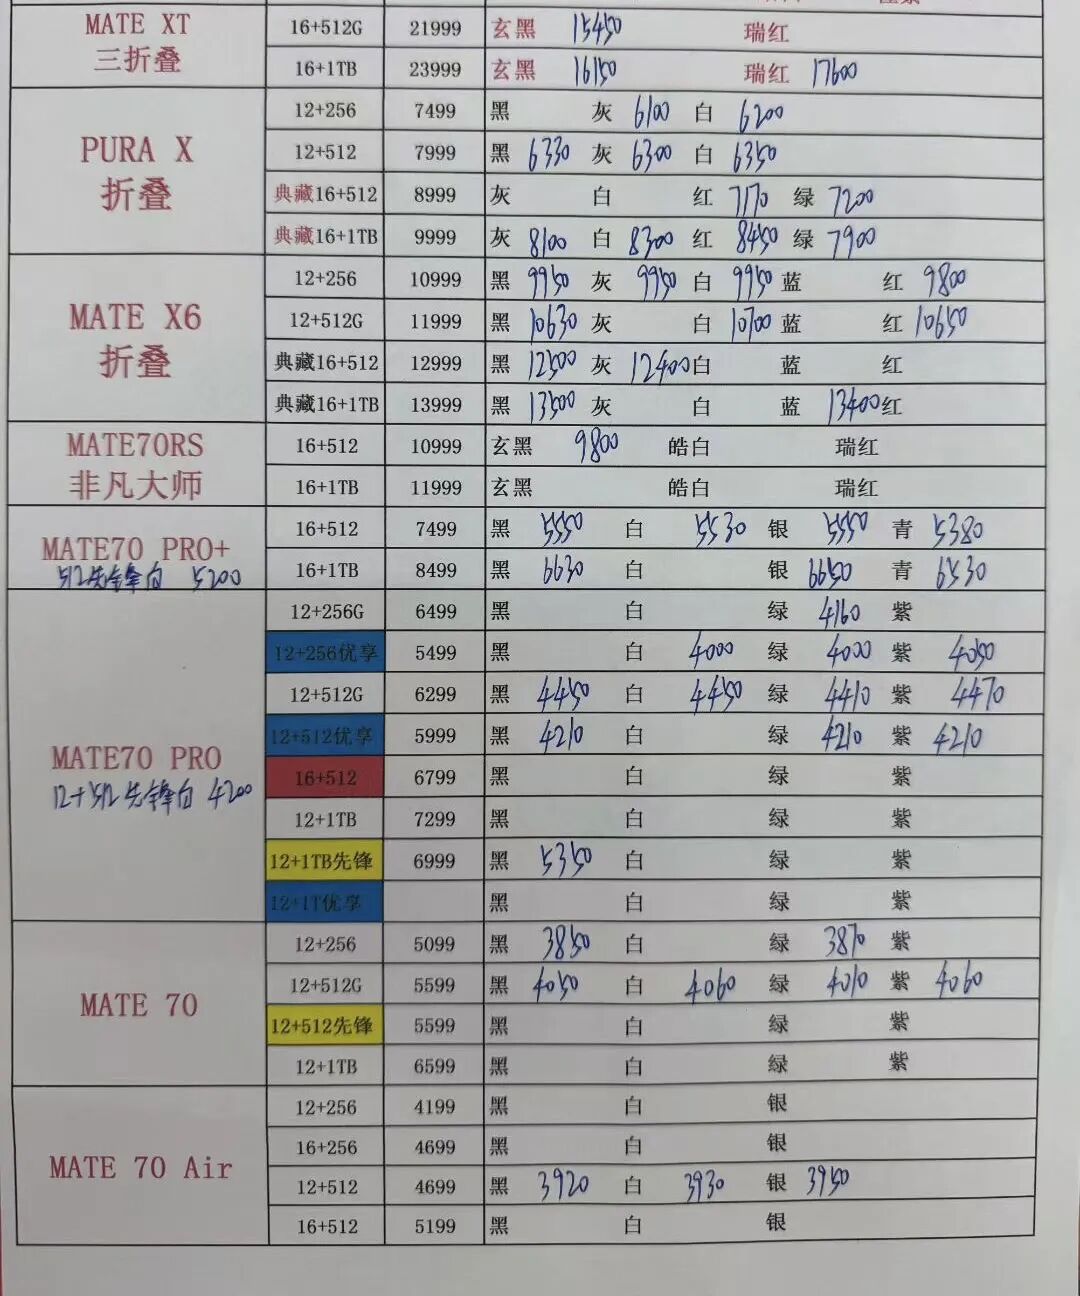 MATE XT
三折叠
16+512G 21999 玄黑 15450 瑞红
16+1TB 23999 玄黑 16150 瑞红 17600
PURA X
折叠
12+256 7499 黑 灰 6100 白 6200
12+512 7999 黑 6330 灰 6300 白 6350
典藏16+512 8999 灰 白 红 7170 绿 7200
典藏16+1TB 9999 灰 8100 白 8300 红 8450 绿 7900
MATE X6
折叠
12+256 10999 黑 9950 灰 9950 白 9950 蓝 红 9800
12+512G 11999 黑 10630 灰 白 10700 蓝 红 10650
典藏16+512 12999 黑 12500 灰 12400 白 蓝 红
典藏16+1TB 13999 黑 13500 灰 白 蓝 13400 红
MATE70RS
非凡大师
16+512 10999 玄黑 9800 皓白 瑞红
16+1TB 11999 玄黑 皓白 瑞红
MATE70 PRO+
512先锋白 5200
16+512 7499 黑 5550 白 5530 银 5550 青 5380
16+1TB 8499 黑 6630 白 银 6650 青 6530
MATE70 PRO
12+512先锋白 4200
12+256G 6499 黑 白 绿 4160 紫
12+256优享 5499 黑 白 4000 绿 4000 紫 4050
12+512G 6299 黑 4450 白 4450 绿 4410 紫 4470
12+512优享 5999 黑 4210 白 绿 4210 紫 4210
16+512 6799 黑 白 绿 紫
12+1TB 7299 黑 白 绿 紫
12+1TB先锋 6999 黑 5350 白 绿 紫
12+1T优享 黑 白 绿 紫
MATE 70
12+256 5099 黑 3850 白 绿 3870 紫
12+512G 5599 黑 4050 白 4060 绿 4010 紫 4060
12+512先锋 5599 黑 白 绿 紫
12+1TB 6599 黑 白 绿 紫
MATE 70 Air
12+256 4199 黑 白 银
16+256 4699 黑 白 银
12+512 4699 黑 3920 白 3930 银 3950
16+512 5199 黑 白 银